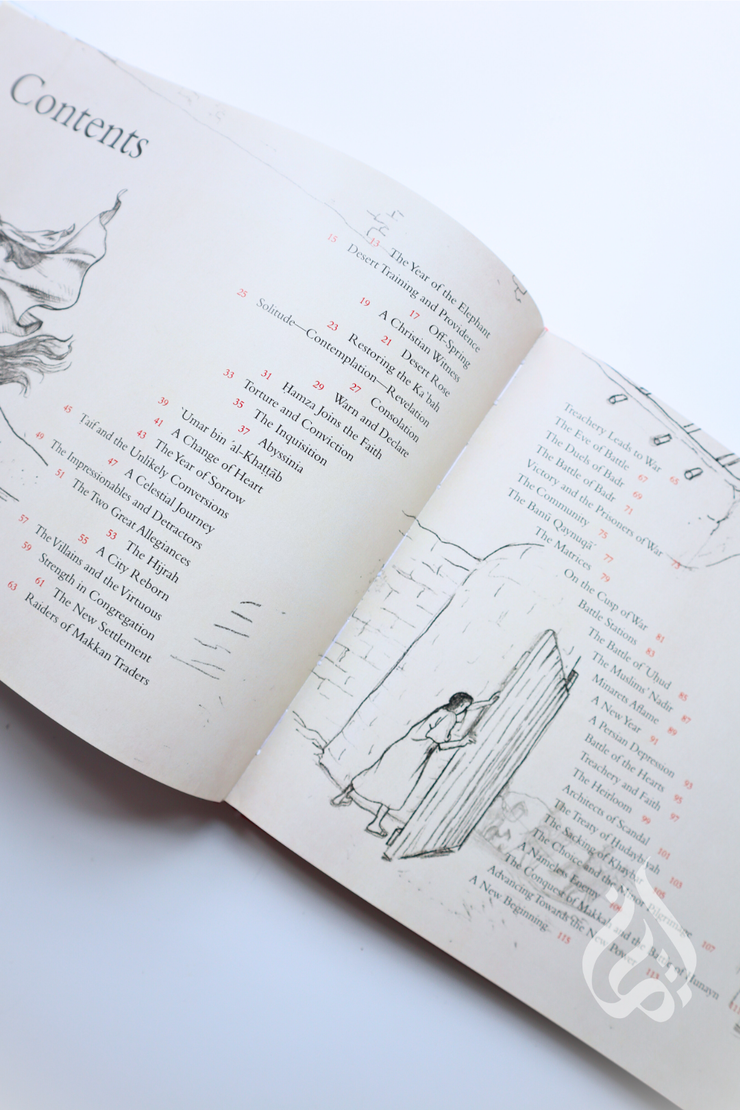 Contents
13 The Year of the Elephant
15 Desert Training and Providence
17 Off-Spring
19 A Christian Witness
21 Desert Rose
23 Restoring the Ka῾bah
25 Solitude—Contemplation—Revelation
27 Consolation
29 Warn and Declare
31 Hamza Joins the Faith
33 Torture and Conviction
35 The Inquisition
37 Abyssinia
39 ῾Umar bin ᾽al-Khaṭṭāb
41 A Change of Heart
43 The Year of Sorrow
45 Taif and the Unlikely Conversions
47 A Celestial Journey
49 The Impressionables and Detractors
51 The Two Great Allegiances
53 The Hijrah
55 A City Reborn
57 The Villains and the Virtuous
59 Strength in Congregation
61 The New Settlement
63 Raiders of Makkan Traders
Treachery Leads to War 65
The Eve of Battle 67
The Duels of Badr 69
The Battle of Badr 71
Victory and the Prisoners of War 73
The Community 75
The Banū Qaynuqā῾ 77
The Matrices 79
On the Cusp of War 81
Battle Stations 83
The Battle of ᾽Uḥud 85
The Muslims' Nadir 87
Minarets Aflame 89
A New Year 91
A Persian Depression 93
Battle of the Hearts 95
Treachery and Faith 97
The Heirloom 99
Architects of Scandal 101
The Treaty of Ḥudaybiyah 103
The Sacking of Khaybar 105
The Choice and the Minor Pilgrimage 107
A Nameless Enemy 109
The Conquest of Makkah and the Battle of Ḥunayn
Advancing Towards the New Power 113
A New Beginning 115